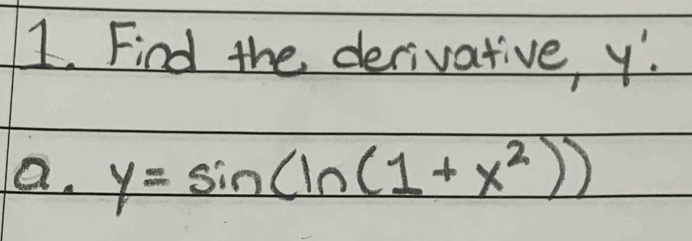 1. Find the derivative, y'.
a. y = sin(ln(1 + x²))